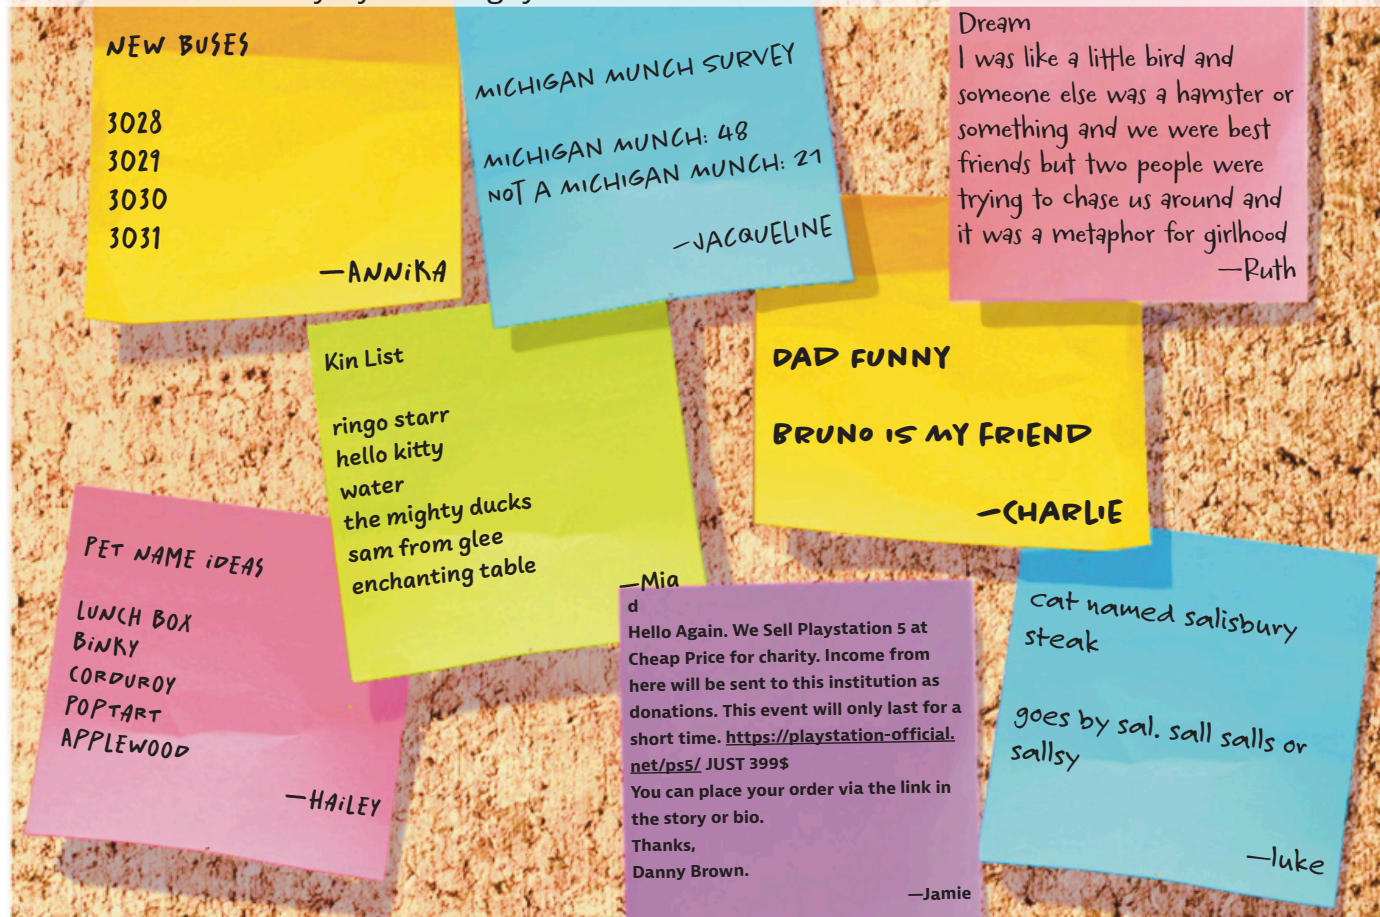 NEW BUSES
3028
3029
3030
3031
—ANNiKA
MICHIGAN MUNCH SURVEY
MICHIGAN MUNCH: 48
NOT A MICHIGAN MUNCH: 21
—JACQUELINE
Dream
I was like a little bird and
someone else was a hamster or
something and we were best
friends but two people were
trying to chase us around and
it was a metaphor for girlhood
—Ruth
Kin List
ringo starr
hello kitty
water
the mighty ducks
sam from glee
enchanting table
—Mia
DAD FUNNY
BRUNO IS MY FRIEND
—CHARLIE
PET NAME iDEAS
LUNCH BOX
BiNKY
CORDUROY
POPTART
APPLEWOOD
—HAiLEY
d
Hello Again. We Sell Playstation 5 at
Cheap Price for charity. Income from
here will be sent to this institution as
donations. This event will only last for a
short time. https://playstation-official.
net/ps5/ JUST 399$
You can place your order via the link in
the story or bio.
Thanks,
Danny Brown.
—Jamie
cat named salisbury
steak
goes by sal. sall salls or
sallsy
—luke